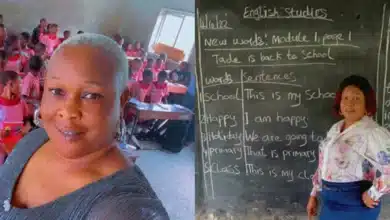 English Studies
New Words' Module 1, page 1
Tade is back to School
words Sentences
School This is my Schoo
Happy I am happy.
We are going to
primary That is primary
Class This is my cl